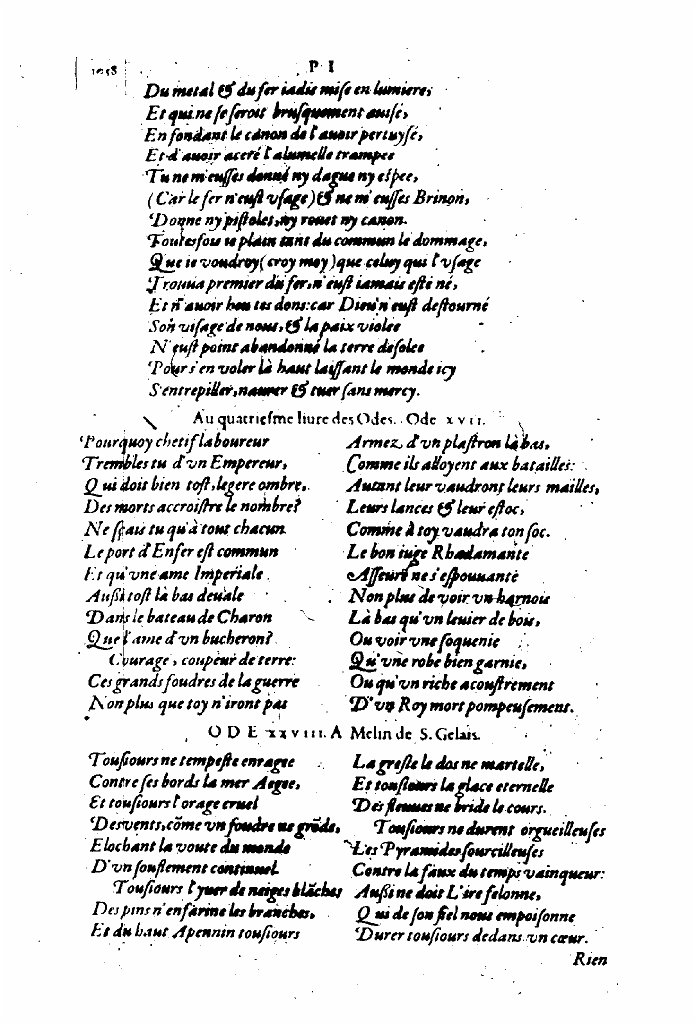 1058
P I
Du metal & du fer iadis mise en lumiere,
Et qui ne se seroit brusquement auisé,
En fondant le canon de l'auoir pertuysé,
Et d'auoir aceré l'alumelle trampee
Tu ne m'eusses donné ny dague ny espee,
(Car le fer n'eust vsage) & ne m'eusses Brinon,
Donne ny pistoles, ny rouet ny canon.
Toutesfois ie plain tant du commun le dommage,
Que ie voudroy (croy moy) que celuy qui l'vsage
Trouua premier du fer, n'eust iamais esté né,
Et n'auoir heu tes dons: car Dieu n'eust destourné
Son visage de nous, & la paix violee
N'eust point abandonné la terre desolee
Pour s'en voler là haut laissant le monde icy
S'entrepiller, naurer & tuer sans mercy.
Au quatriesme liure des Odes. Ode xvii.
Pourquoy chetif laboureur
Trembles tu d'vn Empereur,
Qui doit bien tost, legere ombre,
Des morts accroistre le nombre?
Ne sçais tu qu'à tout chacun
Le port d'Enfer est commun
Et qu'vne ame Imperiale
Aussi tost là bas deuale
Dans le bateau de Charon
Que l'ame d'vn bucheron?
Courage, coupeur de terre:
Ces grands foudres de la guerre
Non plus que toy n'iront pas
Armez d'vn plastron là bas,
Comme ils alloyent aux batailles:
Autant leur vaudront leurs mailles,
Leurs lances & leur estoc,
Comme à toy vaudra ton soc.
Le bon iuge Rhadamante
Asseuré ne s'espouuante
Non plus de voir vn harnois
Là bas qu'vn leuier de bois,
Ou voir vne soquenie
Qu'vne robe bien garnie,
Ou qu'vn riche acoustrement
D'vn Roy mort pompeusement.
ODE xxviii. A Melin de S. Gelais.
Tousiours ne tempeste enragee
Contre ses bords la mer Aegee,
Et tousiours l'orage cruel
Des vents, cõme vn foudre ne grõde,
Elochant la voute du monde
D'vn souflement continuel.
Tousiours l'yuer de neiges blãches
Des pins n'enfarine les branches,
Et du haut Apennin tousiours
La gresle le dos ne martelle,
Et tousiours la glace eternelle
Des fleuues ne bride le cours.
Tousiours ne durent orgueilleuses
Les Pyramides sourcilleuses
Contre la faux du temps vainqueur:
Aussi ne doit L'ire felonne,
Qui de son fiel nous empoisonne
Durer tousiours dedans vn cœur.
Rien